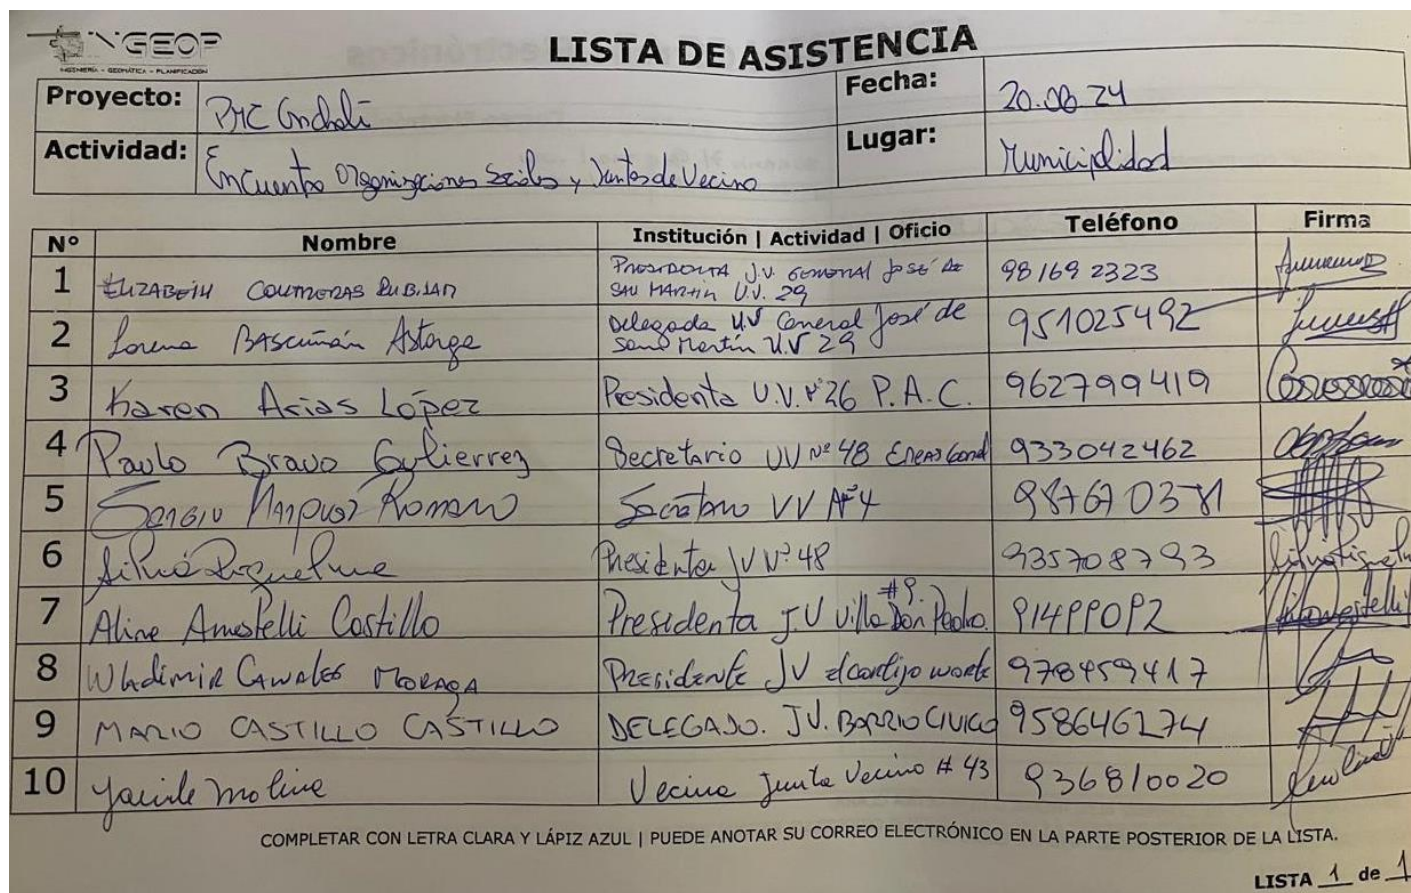 INGEOP
INGENIERÍA - GEOMÁTICA - PLANIFICACIÓN
LISTA DE ASISTENCIA
Proyecto: PMC Conchalí
Fecha: 20.08.24
Actividad: Encuentro Organizaciones Sociales y Juntas de Vecino
Lugar: Municipalidad
Nº Nombre Institución | Actividad | Oficio Teléfono Firma
1 ELIZABETH CONTRERAS 98169 2323
PRESIDENTA J.V. GENERAL José de
SAN MARTIN U.V. 29
2 Lorena BASCUÑÁN Astorga 951025492
Delegada U.V General José de
San Martín U.V 29
3 Karen Arias López Presidenta U.V. Nº26 P.A.C. 962799419
4 Paulo Bravo Gutierrez Secretario UV Nº 48 Eneas Gonel 933042462
5 Sergio Romero Secretario VV Nº4
6 Silvia Riquelme Presidenta JV Nº48 935708793
7 Aline Amestelli Castillo Presidenta J.V Villa Don Pedro. #9. 91499092
8 Wladimir Canales MORAGA Presidente JV el cortijo norte 978459417
9 MARIO CASTILLO CASTILLO DELEGADO. JV. BARRIO CIVICO 958646274
10 Molina Vecina Junta Vecino # 43 936810020
COMPLETAR CON LETRA CLARA Y LÁPIZ AZUL | PUEDE ANOTAR SU CORREO ELECTRÓNICO EN LA PARTE POSTERIOR DE LA LISTA.
LISTA 1 de 1